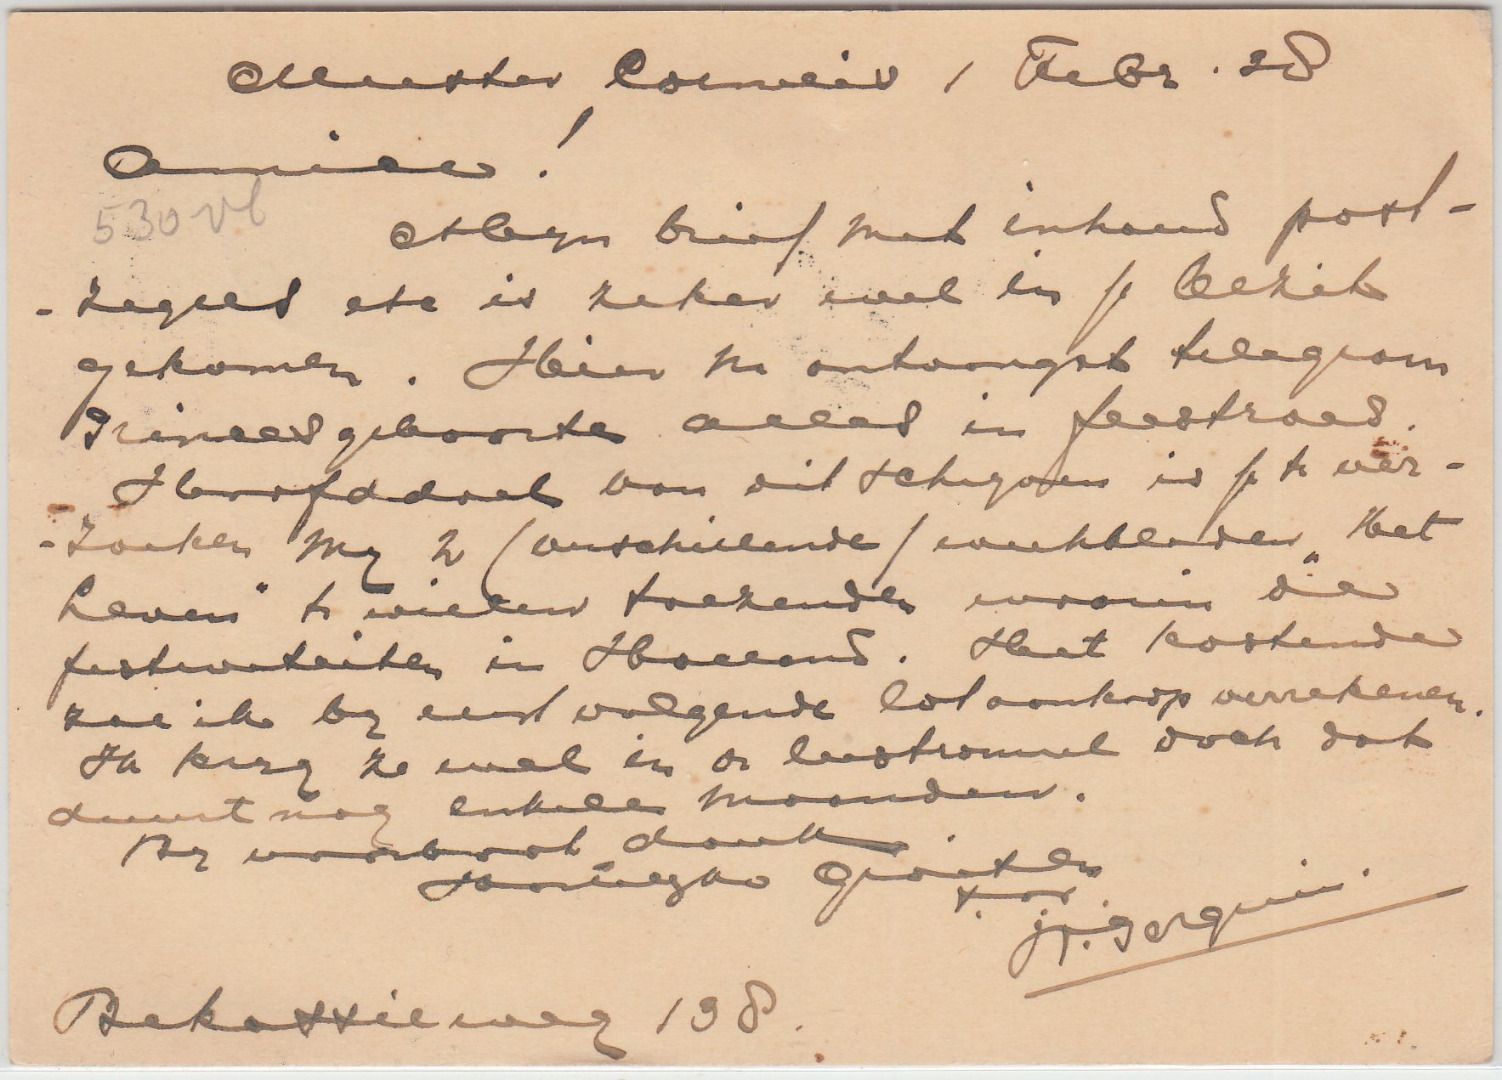 Meester Cornelis 1 Febr. 38
Amice!
530 vb
Mijn brief met inhoud post-
-zegels etc is zeker wel in
gekomen. Hier na ontvangst telegram
Prinsesgeboorte alles in feesttooi.
Hoofddoel van dit schrijven is te ver-
-zoeken mij 2 (verschillende) weekbladen "Het
Leven" te willen toezenden waarin die
festiviteiten in Holland. Het kostende
zal ik bij eerst volgende lotaankoop verrekenen.
Ik krijg ze wel in de leestrommel doch dat
duurt nog enkele maanden.
Bij voorbaat dank.
Hartelijke Groeten
Bekassieweg 138.